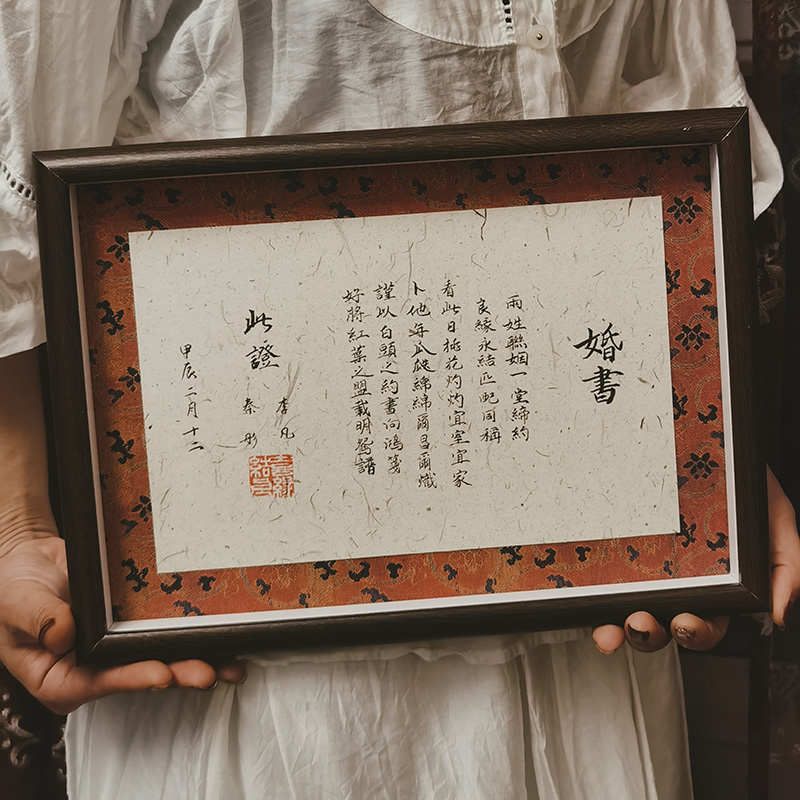 婚書
兩姓聯姻一堂締約
良緣永結匹配同稱
看此日桃花灼灼宜室宜家
卜他年瓜瓞綿綿爾昌爾熾
謹以白頭之約書向鴻箋
好將紅葉之盟載明鴛譜
此證
李凡
秦彤
甲辰二月十二